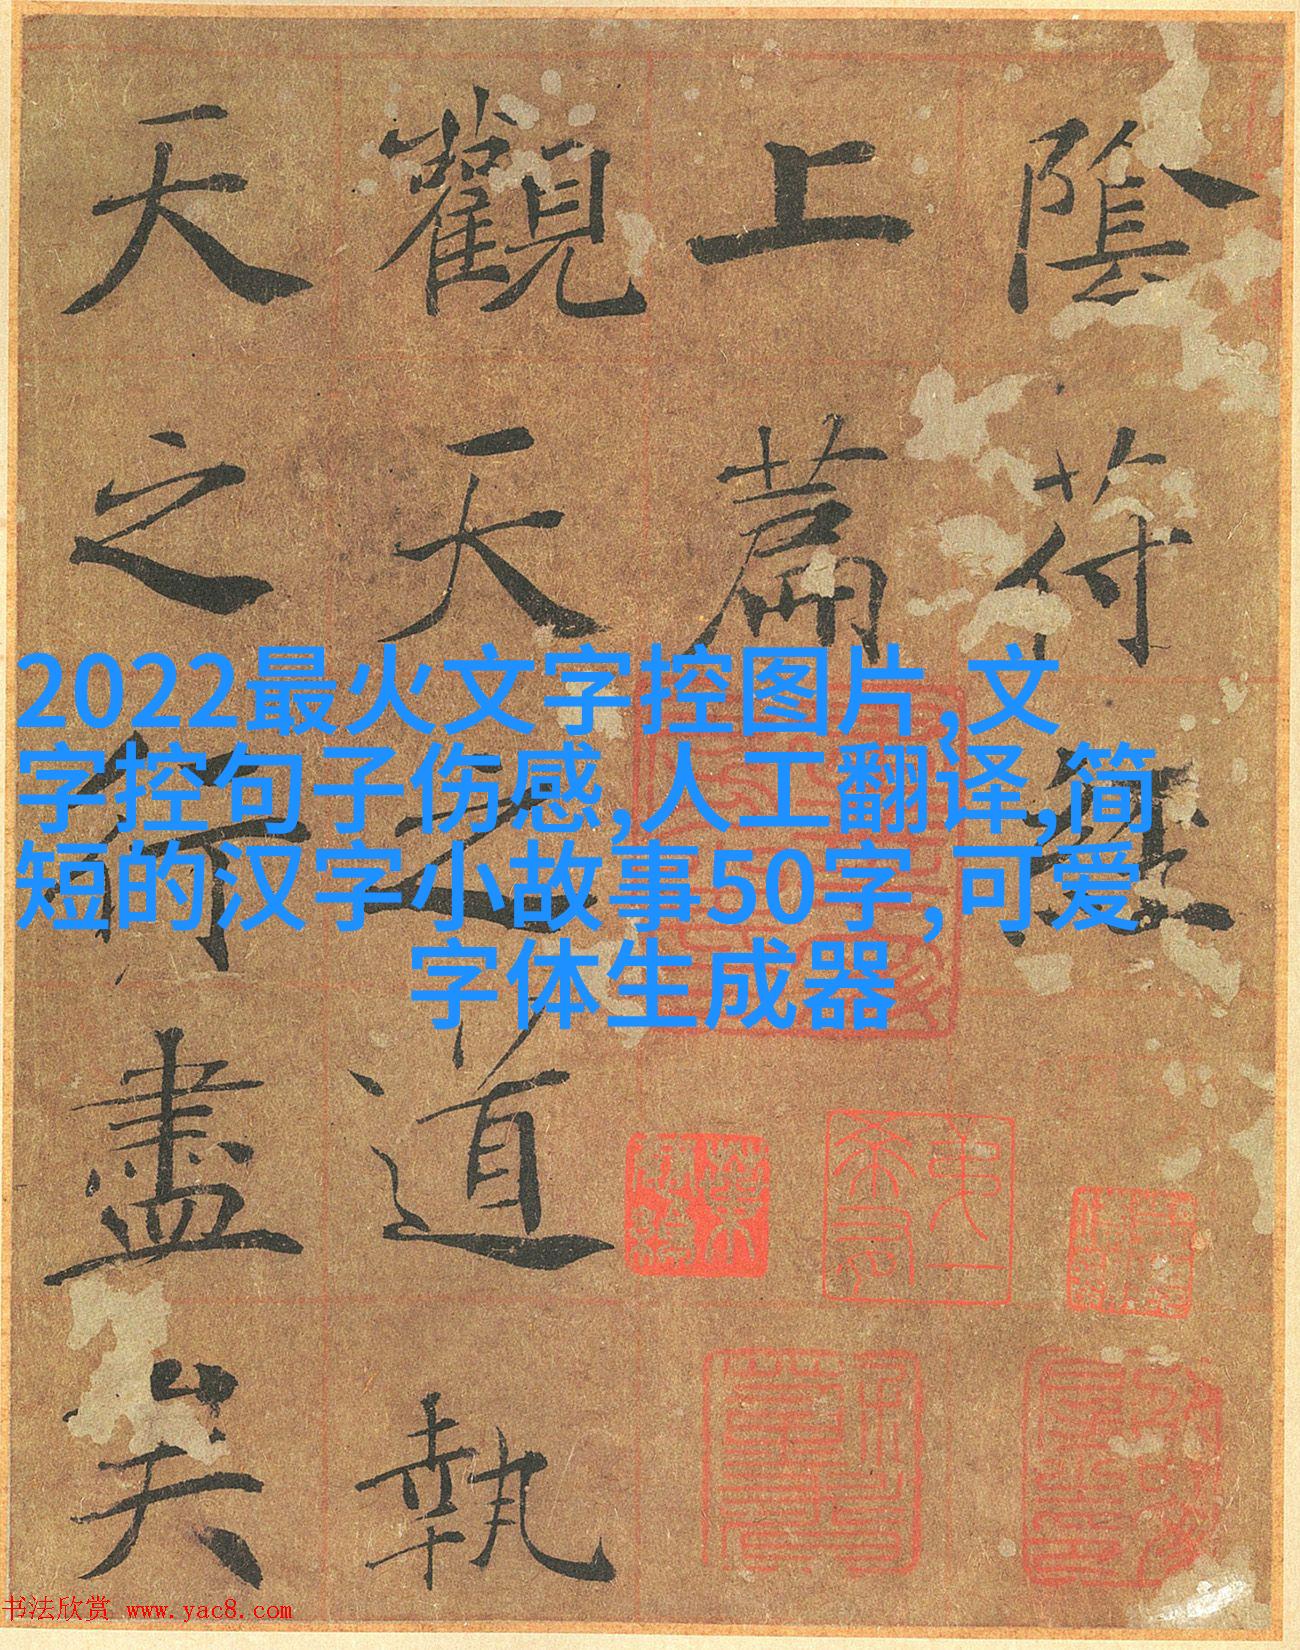 陰符經
上篇
觀天之道執
天之行盡矣
2022最火文字控图片,文
字控句子伤感,人工翻译,简
短的汉字小故事50字,可爱
字体生成器
书法欣赏 www.yac8.com